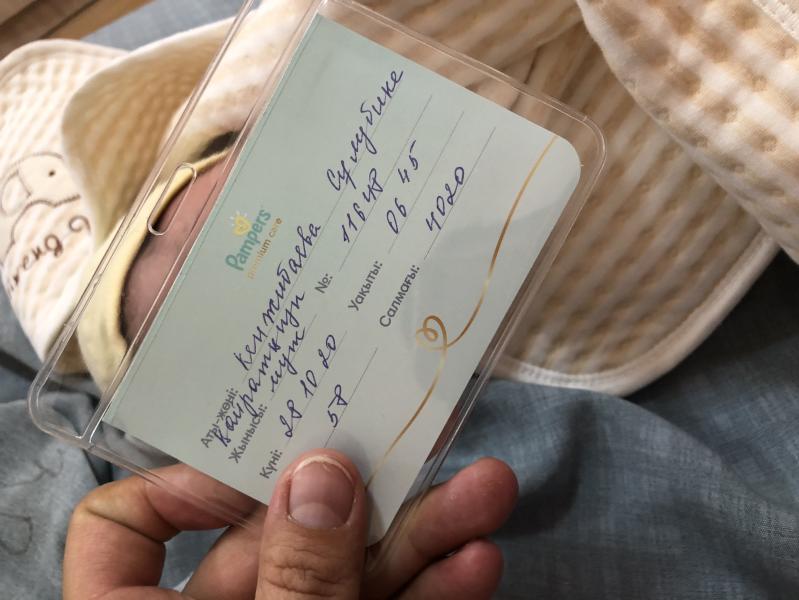 Pampers
premium care
Аты-жөні: Кенжибаева Сулубике
Кайраткызы
Жынысы: муж №: 11648
Күні: 28 10 20 Уақыты: 06 45
58 Салмағы: 4020